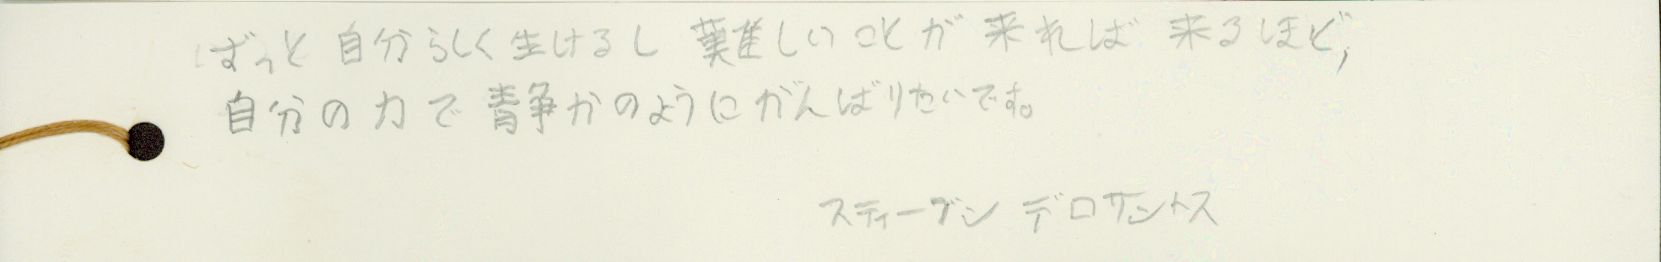 ずっと 自分らしく 生けるし 難しいことが 来れば 来るほど,
自分の力で 静かのようにがんばりたいです。
スティーブン デロサントス